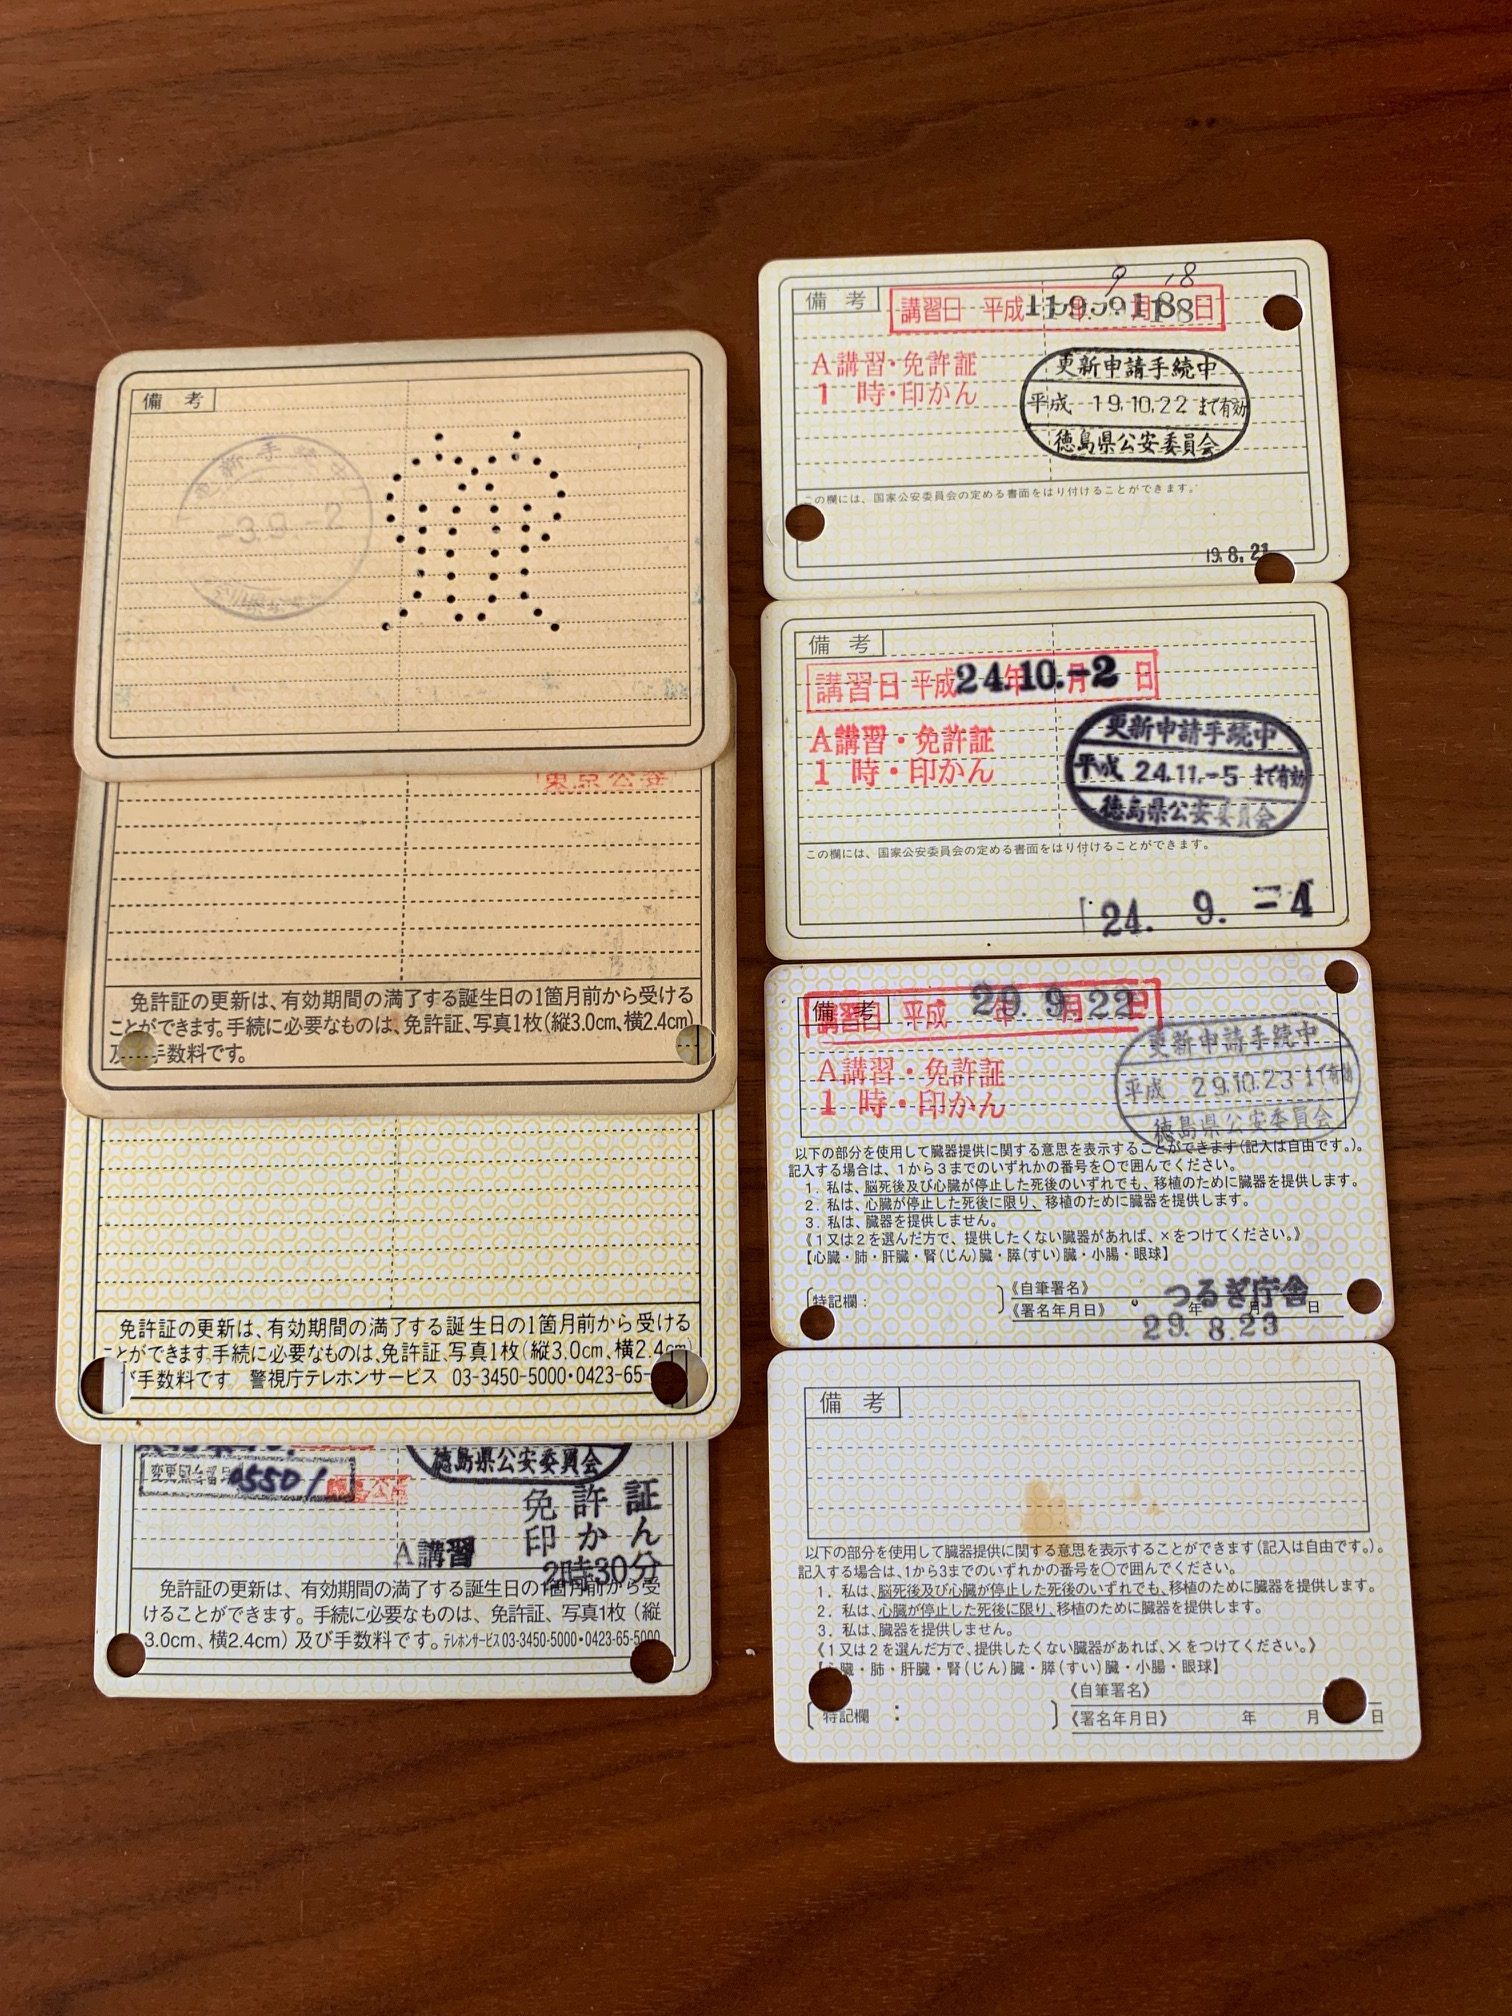 備考
更新手続中
-3.9.-2
東京公安
免許証の更新は、有効期間の満了する誕生日の1箇月前から受ける
ことができます。手続に必要なものは、免許証、写真1枚(縦3.0cm、横2.4cm)
及 手数料です。
免許証の更新は、有効期間の満了する誕生日の1箇月前から受ける
ことができます。手続に必要なものは、免許証、写真1枚(縦3.0cm、横2.4cm)
び手数料です。 警視庁テレホンサービス 03-3450-5000・0423-65-
徳島県公安委員会
05501
免許証
印かん
A講習
2時30分
免許証の更新は、有効期間の満了する誕生日の1箇月前から受
けることができます。手続に必要なものは、免許証、写真1枚(縦
3.0cm、横2.4cm)及び手数料です。テレホンサービス03-3450-5000・0423-65-5000
9 18
備考
講習日 平成 日
A講習・免許証
1時・印かん
更新申請手続中
平成 19.10.22 まで有効
徳島県公安委員会
この欄には、国家公安委員会の定める書面をはり付けることができます。
19.8.21
備考
講習日 平成24年10.-2日
A講習・免許証
1時・印かん
更新申請手続中
平成 24.11.-5 まで有効
徳島県公安委員会
この欄には、国家公安委員会の定める書面をはり付けることができます。
24. 9. -4
備考
講習日 平成 29.9.22日
A講習・免許証
1時・印かん
更新申請手続中
平成 29.10.23 まで有効
徳島県公安委員会
以下の部分を使用して臓器提供に関する意思を表示することができます(記入は自由です。)。
記入する場合は、1から3までのいずれかの番号を○で囲んでください。
1. 私は、脳死後及び心臓が停止した死後のいずれでも、移植のために臓器を提供します。
2. 私は、心臓が停止した死後に限り、移植のために臓器を提供します。
3. 私は、臓器を提供しません。
《1又は2を選んだ方で、提供したくない臓器があれば、×をつけてください。》
【心臓・肺・肝臓・腎(じん)臓・膵(すい)臓・小腸・眼球】
特記欄:
《自筆署名》
《署名年月日》 年 月 日
つるぎ庁舎
29. 8.23
備考
以下の部分を使用して臓器提供に関する意思を表示することができます(記入は自由です。)。
記入する場合は、1から3までのいずれかの番号を○で囲んでください。
1. 私は、脳死後及び心臓が停止した死後のいずれでも、移植のために臓器を提供します。
2. 私は、心臓が停止した死後に限り、移植のために臓器を提供します。
3. 私は、臓器を提供しません。
《1又は2を選んだ方で、提供したくない臓器があれば、×をつけてください。》
【 臓・肺・肝臓・腎(じん)臓・膵(すい)臓・小腸・眼球】
特記欄 :
《自筆署名》
《署名年月日》 年 月 日